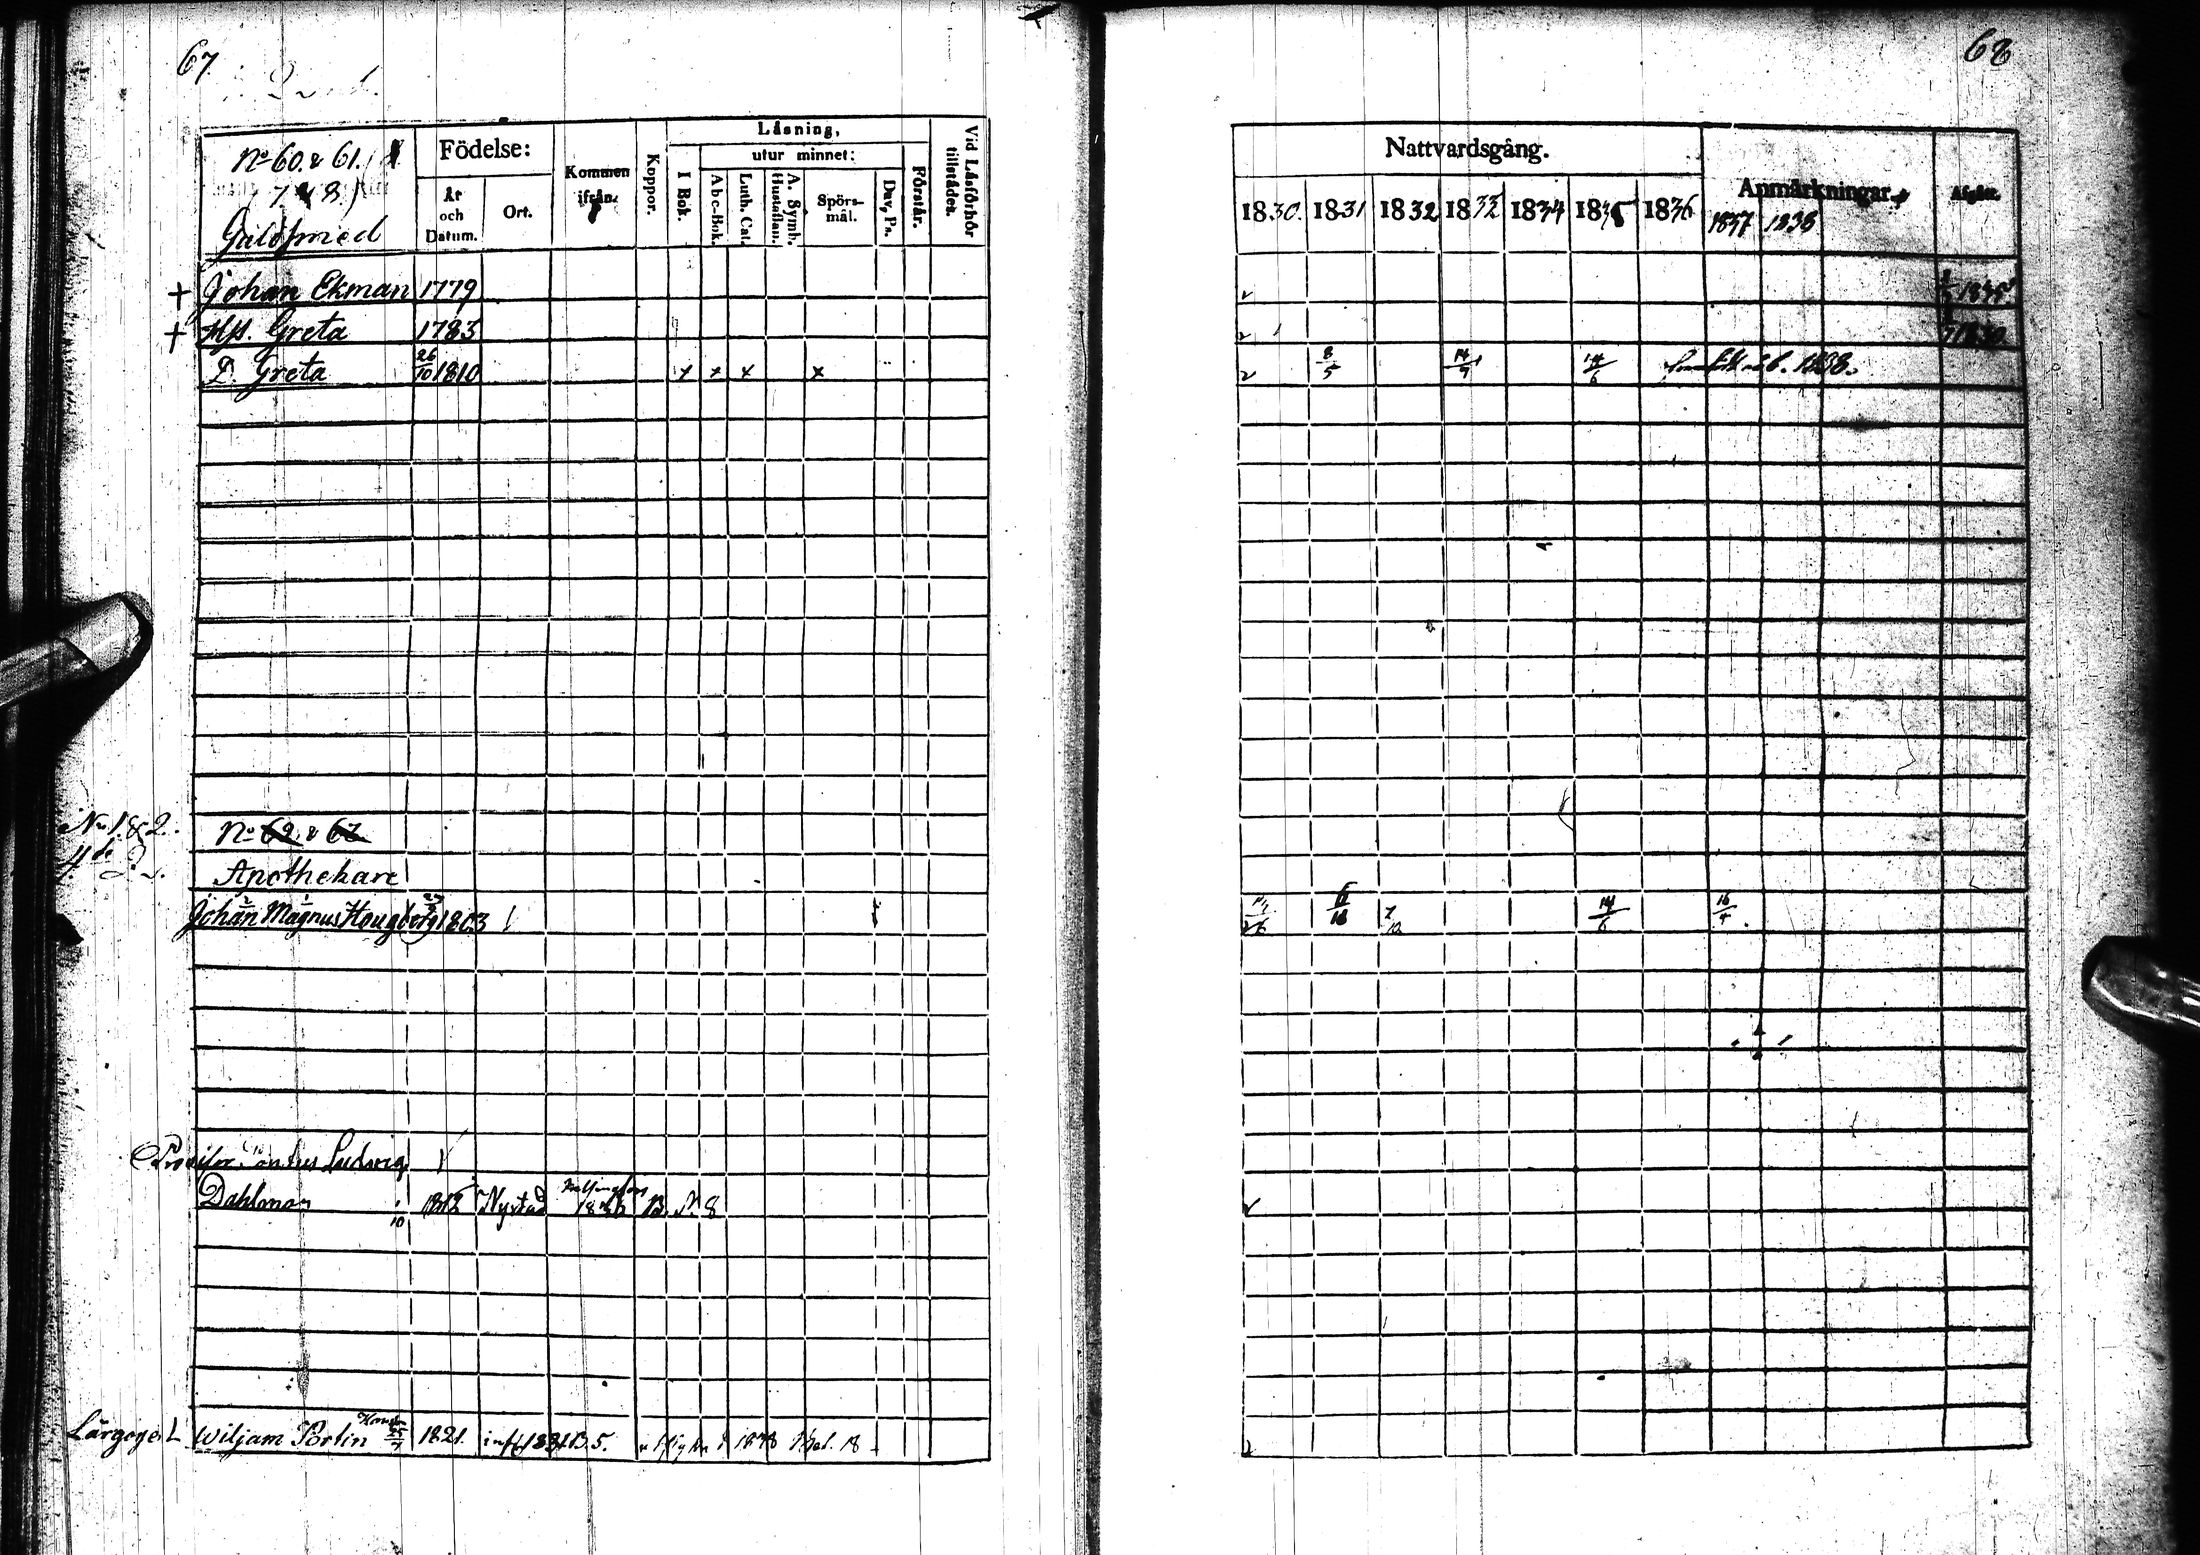 67.
No 60. & 61.
7. & 8.
Guldsmed
Födelse:
År och Datum.
Ort.
Kommen ifrån.
Koppor.
Läsning,
utur minnet:
I Bok.
Abc-Bok.
Luth. Cat.
A. Symb. Hustaflan.
Spörsmål.
Dav. Ps.
Förstår.
Vid Läsförhör tillstädes.
+ Johan Ekman 1779
+ Hs. Greta 1783
D. Greta 26/10 1810 x x x x
No 1. & 2.
4de
No 62. & 67
Apothekare
Johan Magnus Hougberg 1803
Provisor Pontus Ludvig
Dahlman 10 1812 Nystad Helsingfors 1836 B. N 8
Lärgosse Wiljam Portin 25/7 1821. infl. 1834 B. 5.
68
Nattvardsgång.
Anmärkningar.
Afgått.
1830. 1831 1832 1833 1834 1835 1836 1837 1838
2
1835.
2
1830.
2 8/5 14/7 14/6 1838.
6/18 7/10 14/6 16/4